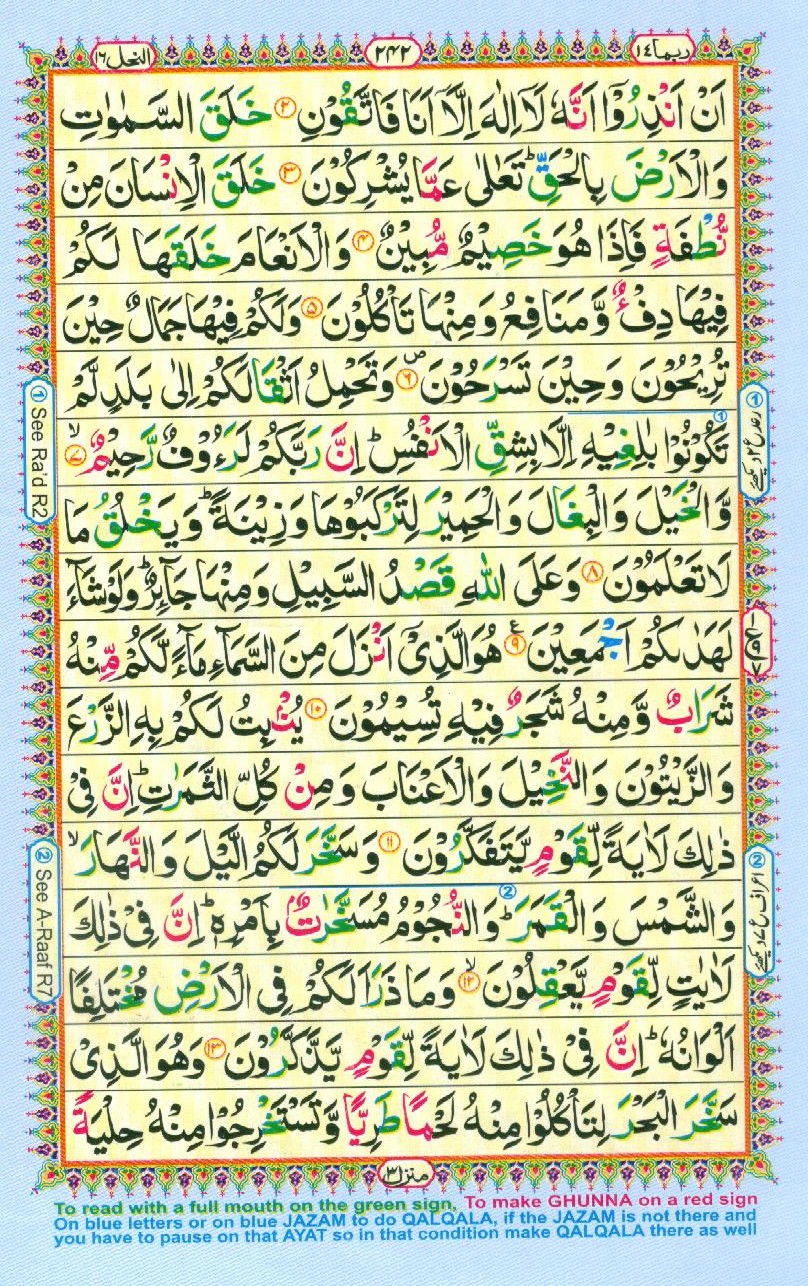 ربما ١٤
٢٤٢
النحل ١٦
اَنْ اَنْذِرُوْۤا اَنَّهٗ لَاۤ اِلٰهَ اِلَّاۤ اَنَا فَاتَّقُوْنِ ۟۲ خَلَقَ السَّمٰوٰتِ
وَالْاَرْضَ بِالْحَقِّ ؕ تَعٰلٰی عَمَّا یُشْرِكُوْنَ ۟۳ خَلَقَ الْاِنْسَانَ مِنْ
نُّطْفَةٍ فَاِذَا هُوَ خَصِیْمٌ مُّبِیْنٌ ۟۴ وَالْاَنْعَامَ خَلَقَهَا لَكُمْ
فِیْهَا دِفْءٌ وَّمَنَافِعُ وَمِنْهَا تَاْكُلُوْنَ ۟۵ وَلَكُمْ فِیْهَا جَمَالٌ حِیْنَ
تُرِیْحُوْنَ وَحِیْنَ تَسْرَحُوْنَ ۪۟۶ وَتَحْمِلُ اَثْقَالَكُمْ اِلٰی بَلَدٍ لَّمْ
تَكُوْنُوْا بٰلِغِیْهِ اِلَّا بِشِقِّ الْاَنْفُسِ ؕ اِنَّ رَبَّكُمْ لَرَءُوْفٌ رَّحِیْمٌ ۟ۙ۷
وَّالْخَیْلَ وَالْبِغَالَ وَالْحَمِیْرَ لِتَرْكَبُوْهَا وَزِیْنَةً ؕ وَیَخْلُقُ مَا
لَا تَعْلَمُوْنَ ۟۸ وَعَلَی اللّٰهِ قَصْدُ السَّبِیْلِ وَمِنْهَا جَآىِٕرٌ ؕ وَلَوْ شَآءَ
لَهَدٰىكُمْ اَجْمَعِیْنَ ۟۠۹ هُوَ الَّذِیْۤ اَنْزَلَ مِنَ السَّمَآءِ مَآءً لَّكُمْ مِّنْهُ
شَرَابٌ وَّمِنْهُ شَجَرٌ فِیْهِ تُسِیْمُوْنَ ۟۱۰ یُنْۢبِتُ لَكُمْ بِهِ الزَّرْعَ
وَالزَّیْتُوْنَ وَالنَّخِیْلَ وَالْاَعْنَابَ وَمِنْ كُلِّ الثَّمَرٰتِ ؕ اِنَّ فِیْ
ذٰلِكَ لَاٰیَةً لِّقَوْمٍ یَّتَفَكَّرُوْنَ ۟۱۱ وَسَخَّرَ لَكُمُ الَّیْلَ وَالنَّهَارَ ۙ
وَالشَّمْسَ وَالْقَمَرَ ؕ وَالنُّجُوْمُ مُسَخَّرٰتٌۢ بِاَمْرِهٖ ؕ اِنَّ فِیْ ذٰلِكَ
لَاٰیٰتٍ لِّقَوْمٍ یَّعْقِلُوْنَ ۟ۙ۱۲ وَمَا ذَرَاَ لَكُمْ فِی الْاَرْضِ مُخْتَلِفًا
اَلْوَانُهٗ ؕ اِنَّ فِیْ ذٰلِكَ لَاٰیَةً لِّقَوْمٍ یَّذَّكَّرُوْنَ ۟۱۳ وَهُوَ الَّذِیْ
سَخَّرَ الْبَحْرَ لِتَاْكُلُوْا مِنْهُ لَحْمًا طَرِیًّا وَّتَسْتَخْرِجُوْا مِنْهُ حِلْیَةً
① رعد ع ٢ دیکھئے
② اعراف ع ٧ دیکھئے
① See Ra'd R2
② See A-Raaf R7
منزل ٣
To read with a full mouth on the green sign, To make GHUNNA on a red sign
On blue letters or on blue JAZAM to do QALQALA, if the JAZAM is not there and
you have to pause on that AYAT so in that condition make QALQALA there as well